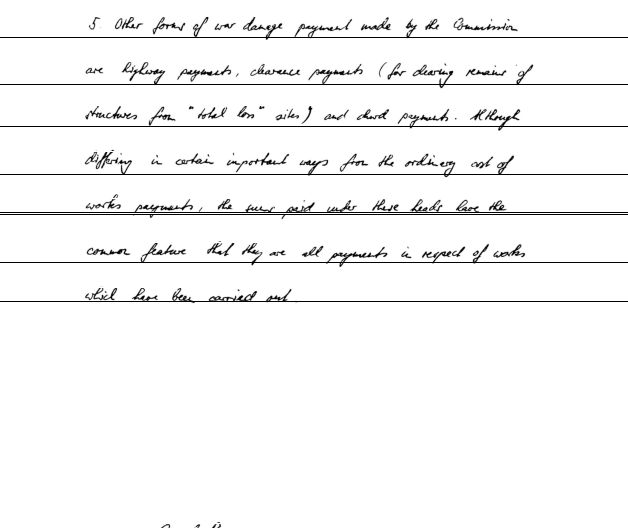 5. Other forms of war damage payment made by the Commission
are highway payments, clearance payments (for clearing remains of
structures from "total loss" sites) and church payments. Although
differing in certain important ways from the ordinary cost of
works payments, the sums paid under these heads have the
common feature that they are all payments in respect of works
which have been carried out.